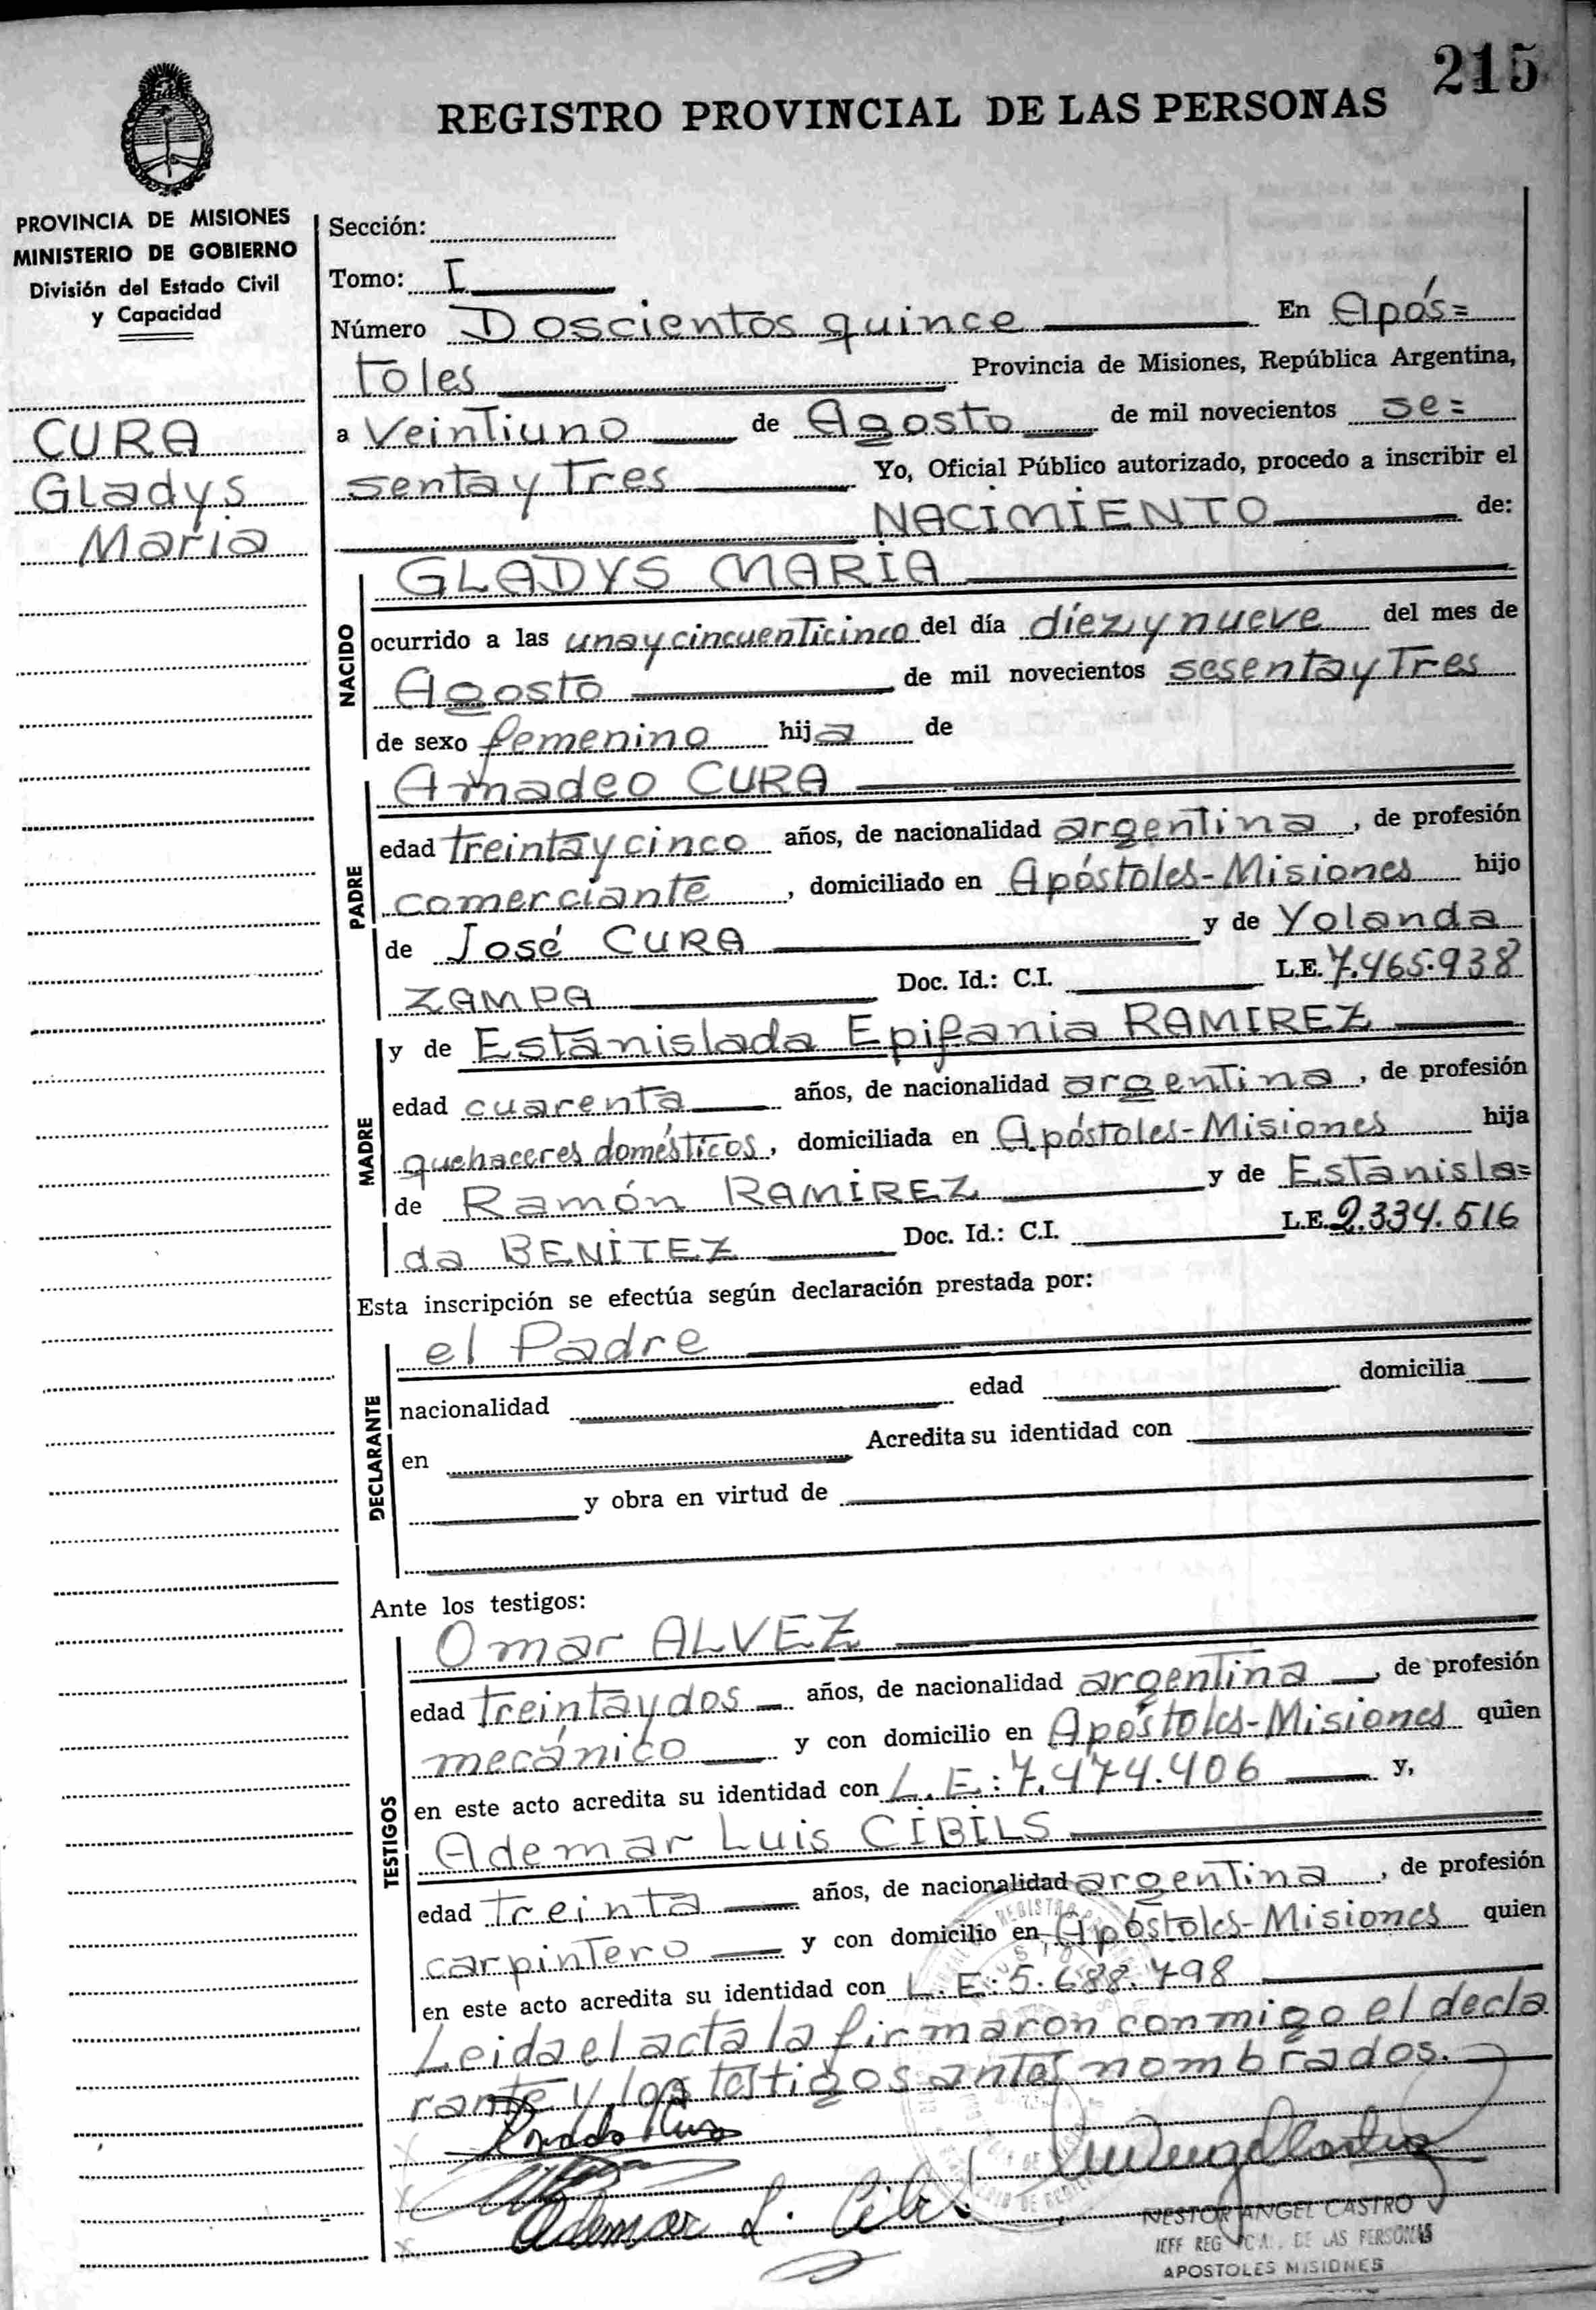 215
REGISTRO PROVINCIAL DE LAS PERSONAS
PROVINCIA DE MISIONES
MINISTERIO DE GOBIERNO
División del Estado Civil
y Capacidad
CURA
Gladys
Maria
Sección:
Tomo: I
Número Doscientos quince En Após=
toles Provincia de Misiones, República Argentina,
a Veintiuno de Agosto de mil novecientos se=
senta y Tres Yo, Oficial Público autorizado, procedo a inscribir el
NACIMIENTO de:
NACIDO
GLADYS MARIA
ocurrido a las una y cincuenticinco del día diez y nueve del mes de
Agosto de mil novecientos sesenta y Tres
de sexo femenino hija de
PADRE
Amadeo CURA
edad treinta y cinco años, de nacionalidad argentina, de profesión
comerciante, domiciliado en Apóstoles-Misiones hijo
de José CURA y de Yolanda
ZAMPA Doc. Id.: C.I. L.E. 7.465.938
MADRE
y de Estanislada Epifania RAMIREZ
edad cuarenta años, de nacionalidad argentina, de profesión
quehaceres domésticos, domiciliada en Apóstoles-Misiones hija
de Ramón RAMIREZ y de Estanisla=
da BENITEZ Doc. Id.: C.I. L.E. 2.334.516
Esta inscripción se efectúa según declaración prestada por:
DECLARANTE
el Padre
nacionalidad edad domicilia
en Acredita su identidad con
y obra en virtud de
Ante los testigos:
TESTIGOS
Omar ALVEZ
edad treinta y dos años, de nacionalidad argentina, de profesión
mecánico y con domicilio en Apóstoles-Misiones quien
en este acto acredita su identidad con L.E: 7.474.406 y,
Ademar Luis CIBILS
edad treinta años, de nacionalidad argentina, de profesión
carpintero y con domicilio en Apóstoles-Misiones quien
en este acto acredita su identidad con L.E: 5.688.798
Leida el acta la firmaron conmigo el decla
rante y los testigos antes nombrados.
Ademar L. Cibils
NESTOR ANGEL CASTRO
JEFE REG DE LAS PERSONAS
APOSTOLES MISIONES